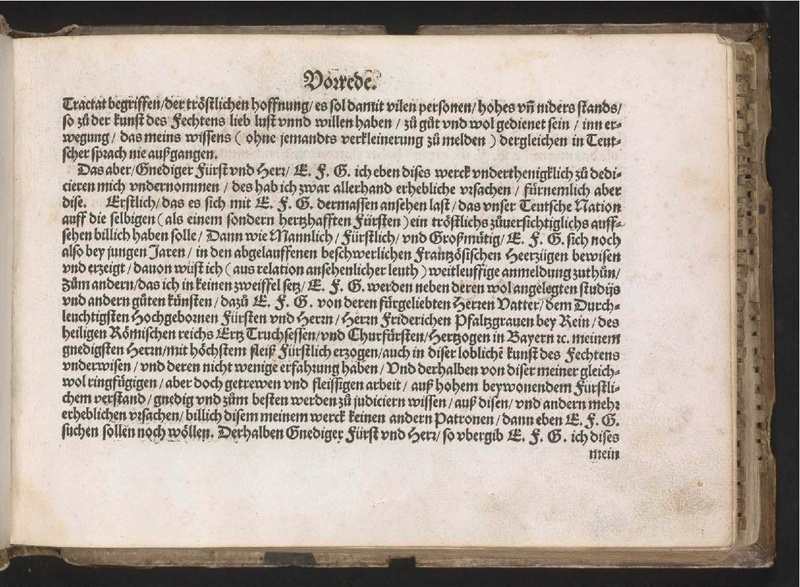 Vorrede.
Tractat begriffen/der tröstlichen hoffnung/es sol damit vilen personen/hohes vñ niders stands/
so zů der kunst des Fechtens lieb lust vnnd willen haben/zů gůt vnd wol gedienet sein/inn er-
wegung/das meins wissens (ohne jemandts verkleinerung zů melden) dergleichen in Teut-
scher sprach nie außgangen.
Das aber/Gnediger Fürst vnd Herr/E. F. G. ich eben dises werck vnderthenigklich zů dedi-
cieren mich vndernommen/des hab ich zwar allerhand erhebliche vrsachen/fürnemlich aber
dise. Erstlich/das es sich mit E. F. G. dermassen ansehen last/das vnser Teutsche Nation
auff die selbigen (als einem sondern hertzhafften Fürsten) ein tröstlichs zůuersichtiglichs auff-
sehen billich haben solle/Dann wie Mannlich/Fürstlich/vnd Großmütig/E. F. G. sich noch
also bey jungen Jaren/in den abgelauffenen beschwerlichen Frantzösischen Heerzügen bewisen
vnd erzeigt/dauon wüst ich (aus relation ansehenlicher leuth) weitleuffige anmeldung zuthůn/
Zům andern/das ich in keinen zweiffel setz/E. F. G. werden neben deren wol angelegten studijs
vnd andern gůten künsten/dazů E. F. G. von deren fürgeliebten Herren Vatter/dem Durch-
leuchtigsten Hochgebornen Fürsten vnd Herrn/Herrn Friderichen Pfaltzgrauen bey Rein/des
heiligen Römischen reichs Ertz Truchsessen/vnd Churfürsten/Hertzogen in Bayern ꝛc. meinem
gnedigsten Herrn/mit höchstem fleiß Fürstlich erzogen/auch in diser loblichē kunst des Fechtens
vnderwisen/vnd deren nicht wenige erfahrung haben/Vnd derhalben von diser meiner gleich-
wol ringfügigen/aber doch getrewen vnd fleissigen arbeit/auß hohem beywonendem Fürstli-
chem verstand/gnedig vnd zům besten werden zů judiciern wissen/auß disen/vnd andern mehr
erheblichen vrsachen/billich disem meinem werck keinen andern Patronen/dann eben E. F. G.
suchen sollen noch wöllen. Derhalben Gnediger Fürst vnd Herr/so vbergib E. F. G. ich dises
mein